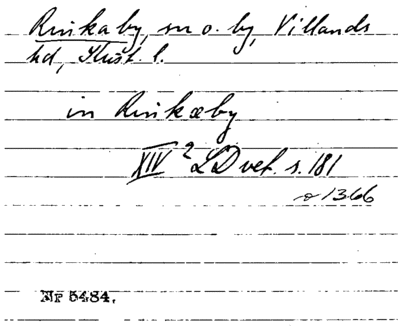 Rinkaby, sn o. by, Villands
hd, Krist. l.
in Rinkæby
XIV 2 LD vet. s. 181
1366
Nr 5484.